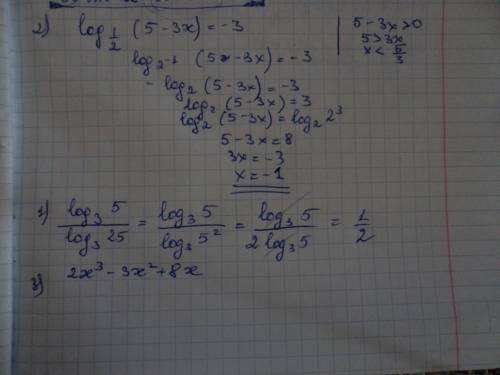 2) log_{1/2} (5-3x) = -3
5-3x>0
5>3x
x < 5/3
log_{2^{-1}} (5-3x) = -3
- log_2 (5-3x) = -3
log_2 (5-3x) = 3
log_2 (5-3x) = log_2 2^3
5-3x = 8
3x = -3
x = -1
1) log_3 5 / log_3 25 = log_3 5 / log_3 5^2 = log_3 5 / 2 log_3 5 = 1/2
3) 2x^3 - 3x^2 + 8x